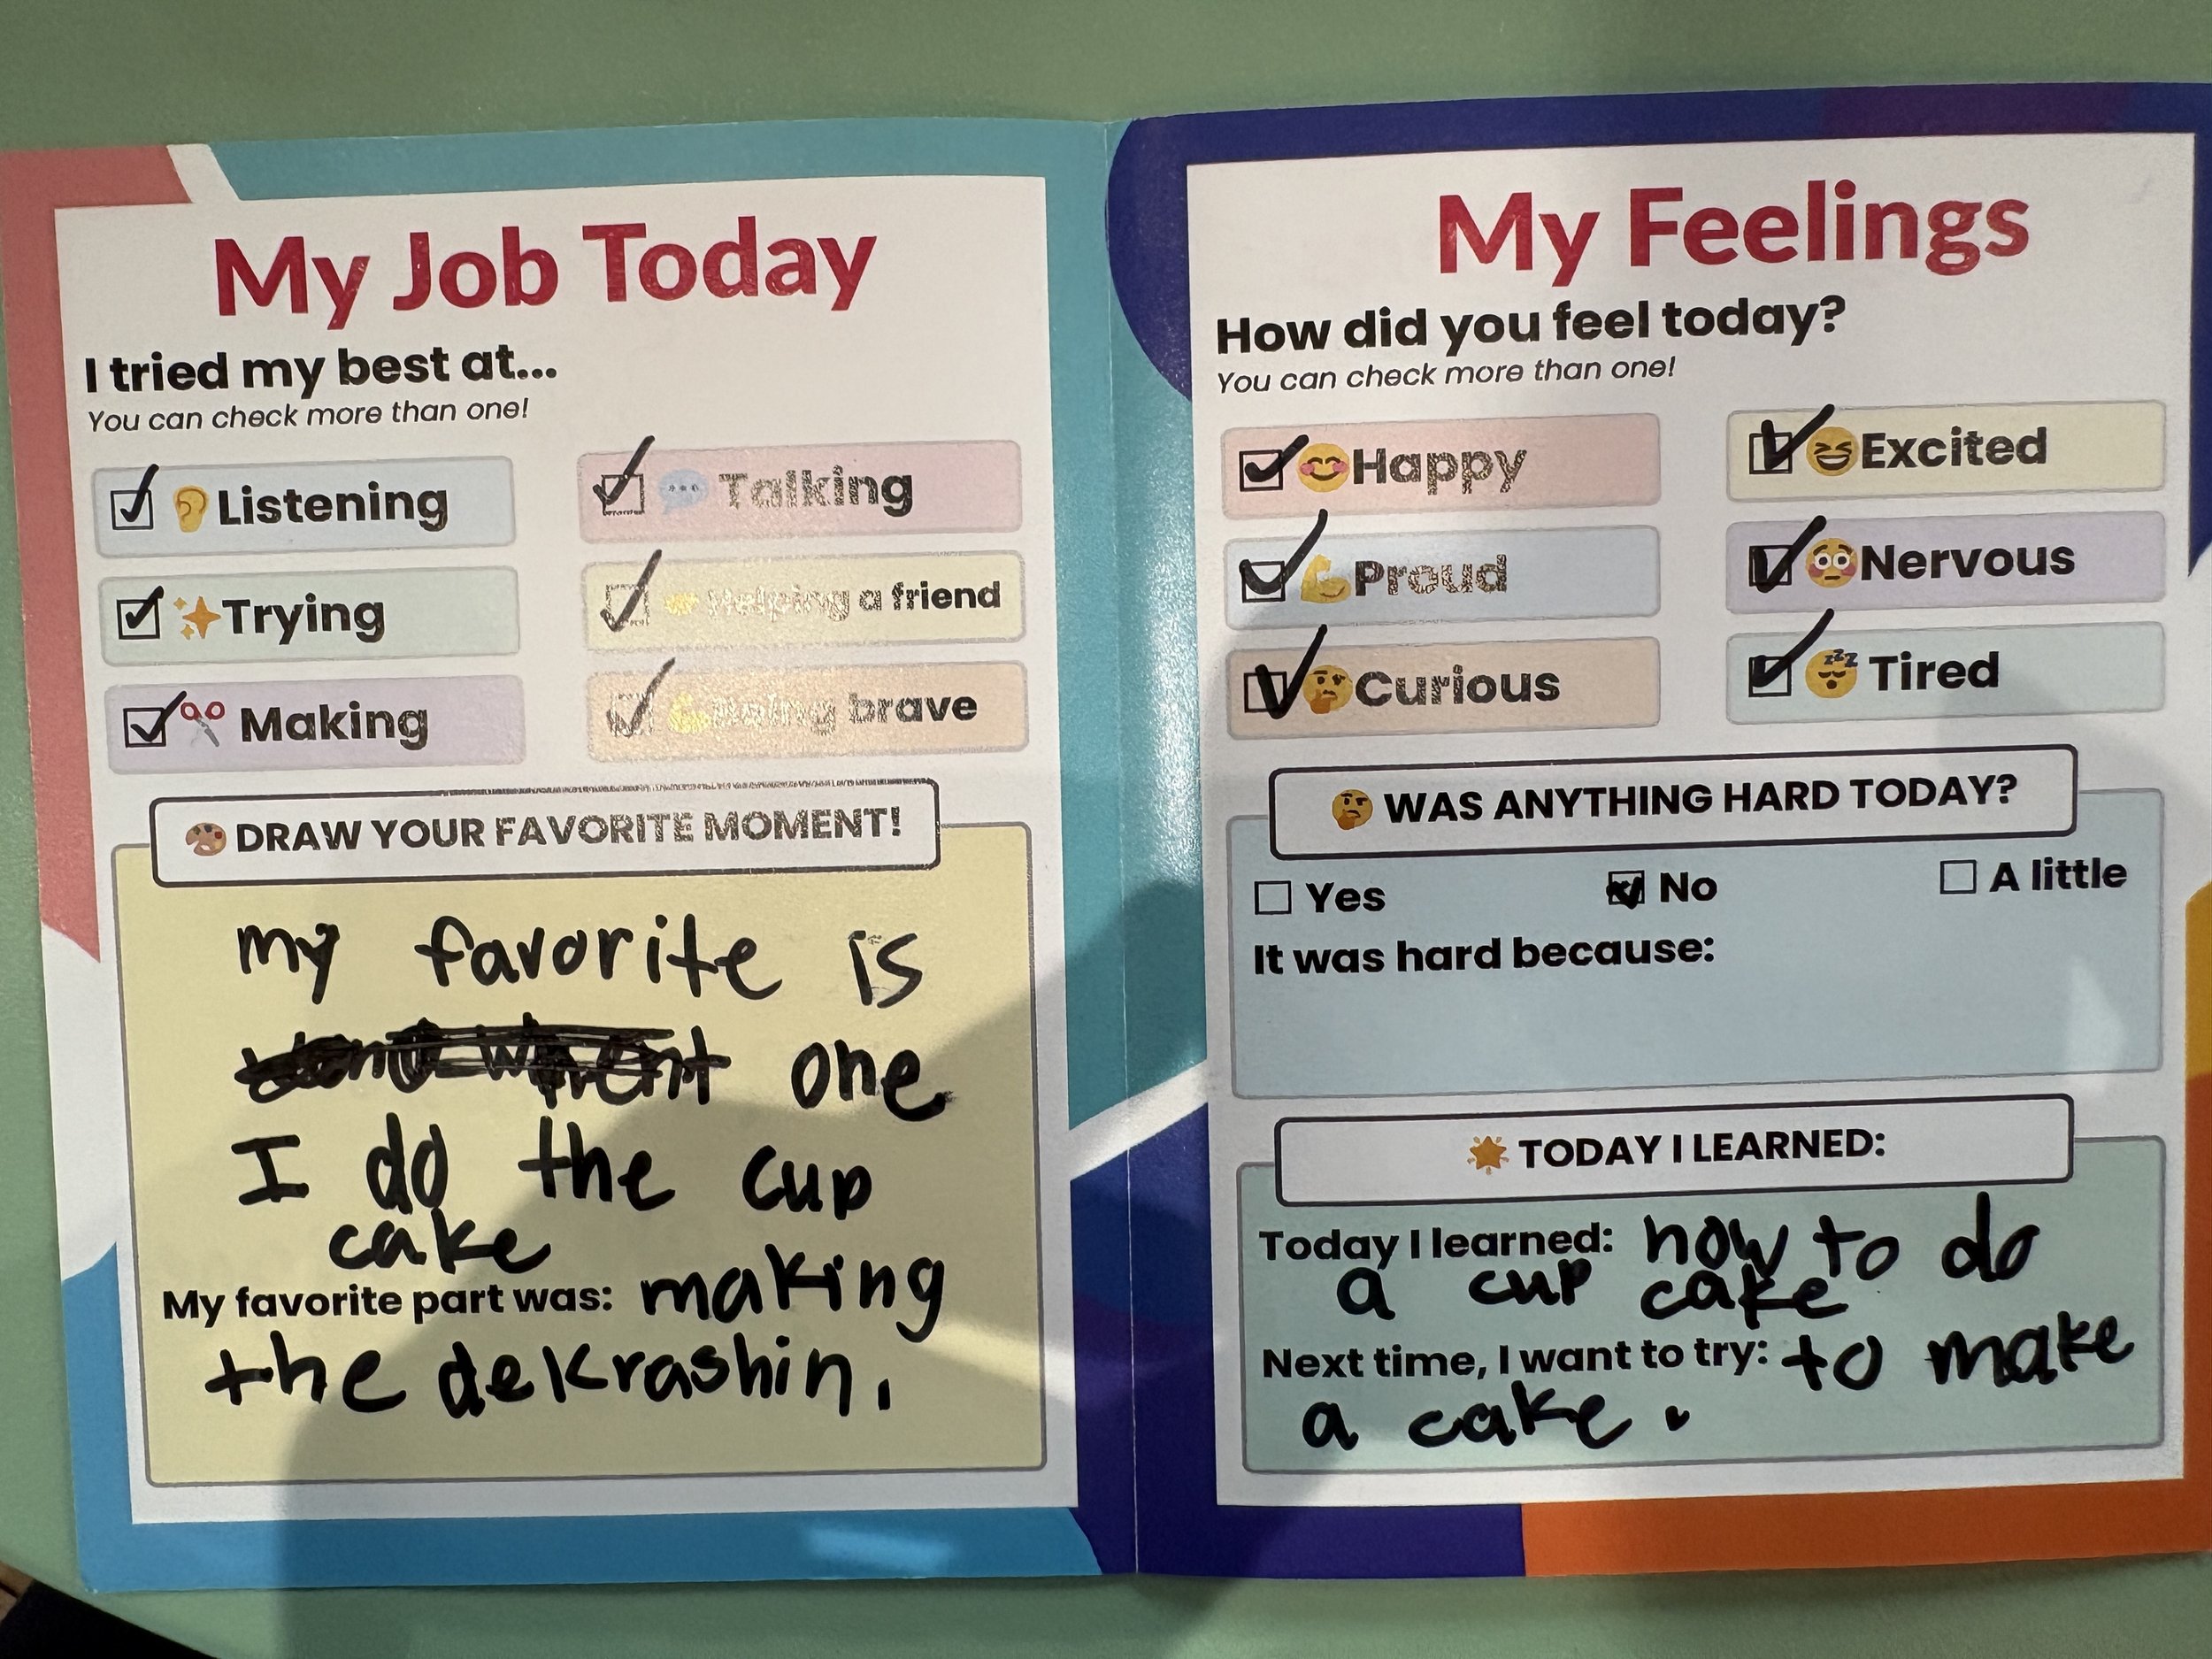 My Job Today
I tried my best at...
You can check more than one!
Listening
Talking
Trying
Helping a friend
Making
Being brave
DRAW YOUR FAVORITE MOMENT!
my favorite is
one
I do the cup
cake
My favorite part was: making
the dekrashin.
My Feelings
How did you feel today?
You can check more than one!
Happy
Excited
Proud
Nervous
Curious
Tired
WAS ANYTHING HARD TODAY?
Yes No A little
It was hard because:
TODAY I LEARNED:
Today I learned: how to do
a cup cake
Next time, I want to try: to make
a cake.